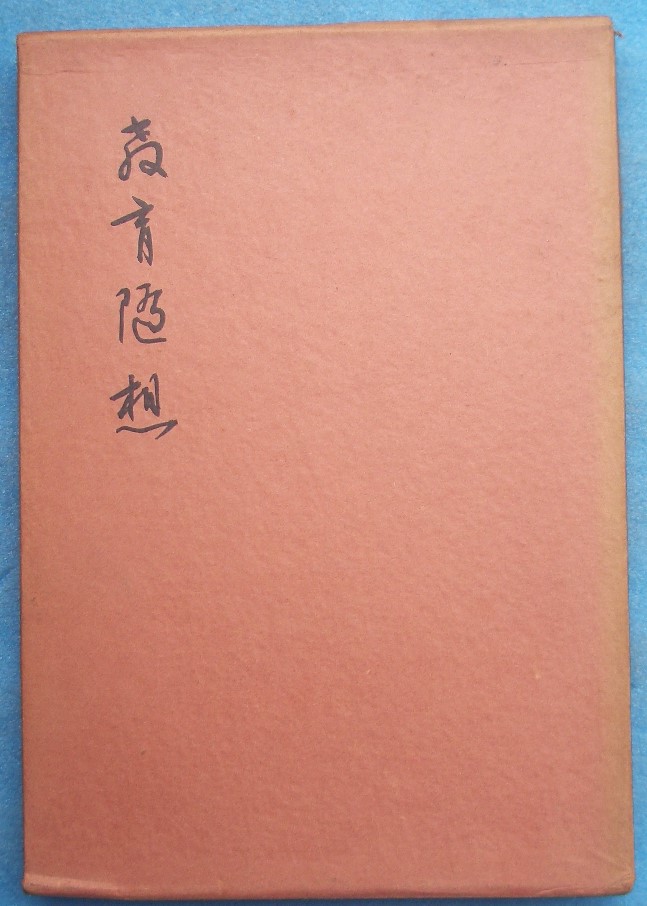 教育随想